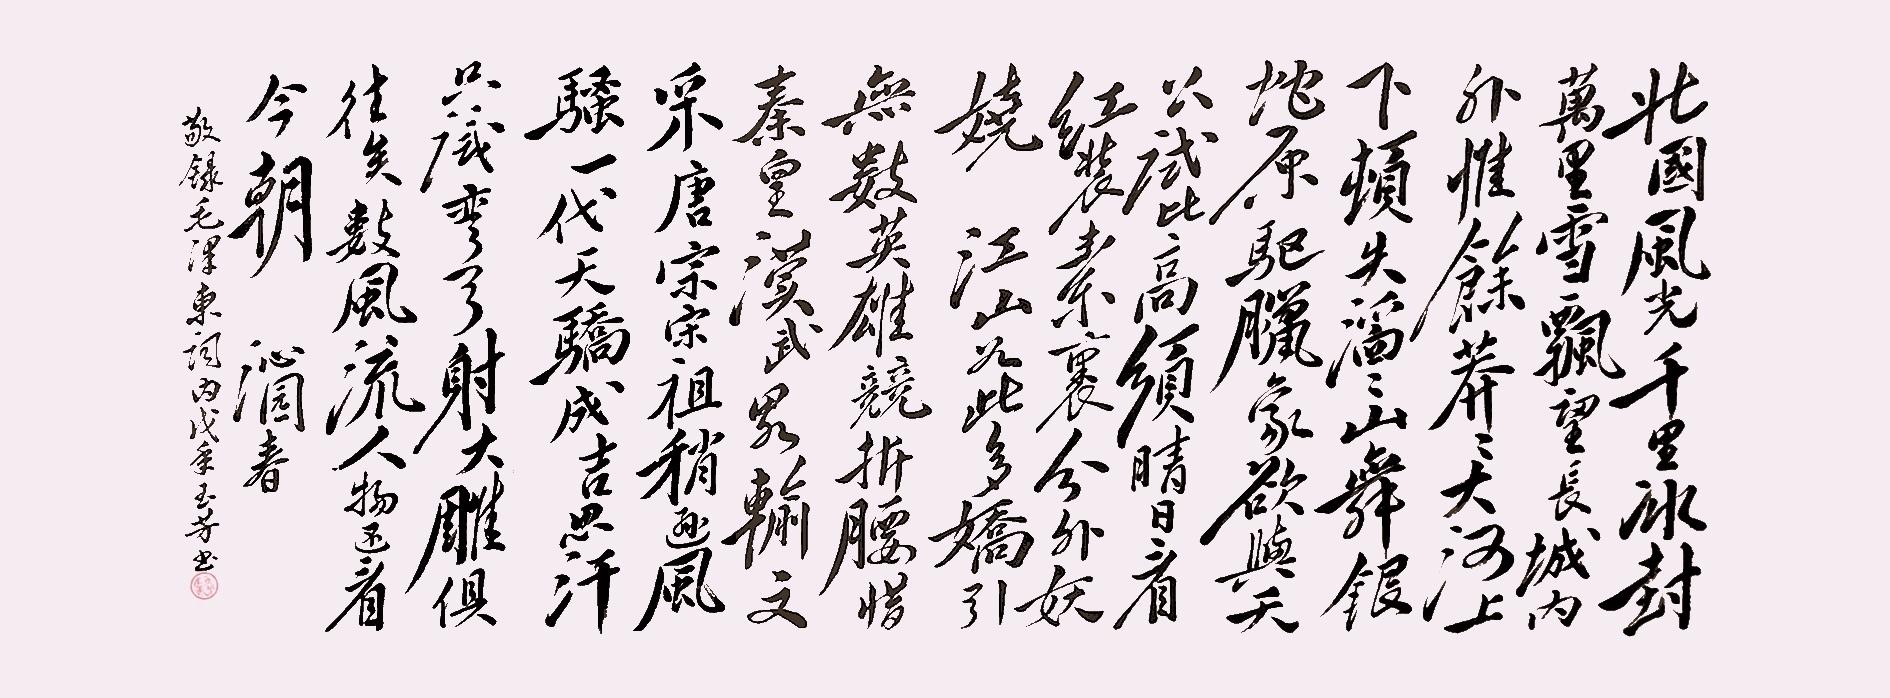 北國風光千里冰封
萬里雪飄望長城內
外惟餘莽〻大河上
下頓失滔〻山舞銀
蛇原馳臘象欲與天
公試比高須晴日看
紅裝素裹分外妖
嬈 江山如此多嬌引
無數英雄競折腰惜
秦皇漢武略輸文
采唐宗宋祖稍遜風
騷一代天驕成吉思汗
只識彎弓射大雕俱
往矣數風流人物還看
今朝 沁園春
敬錄毛澤東詞丙戌年玉芳書